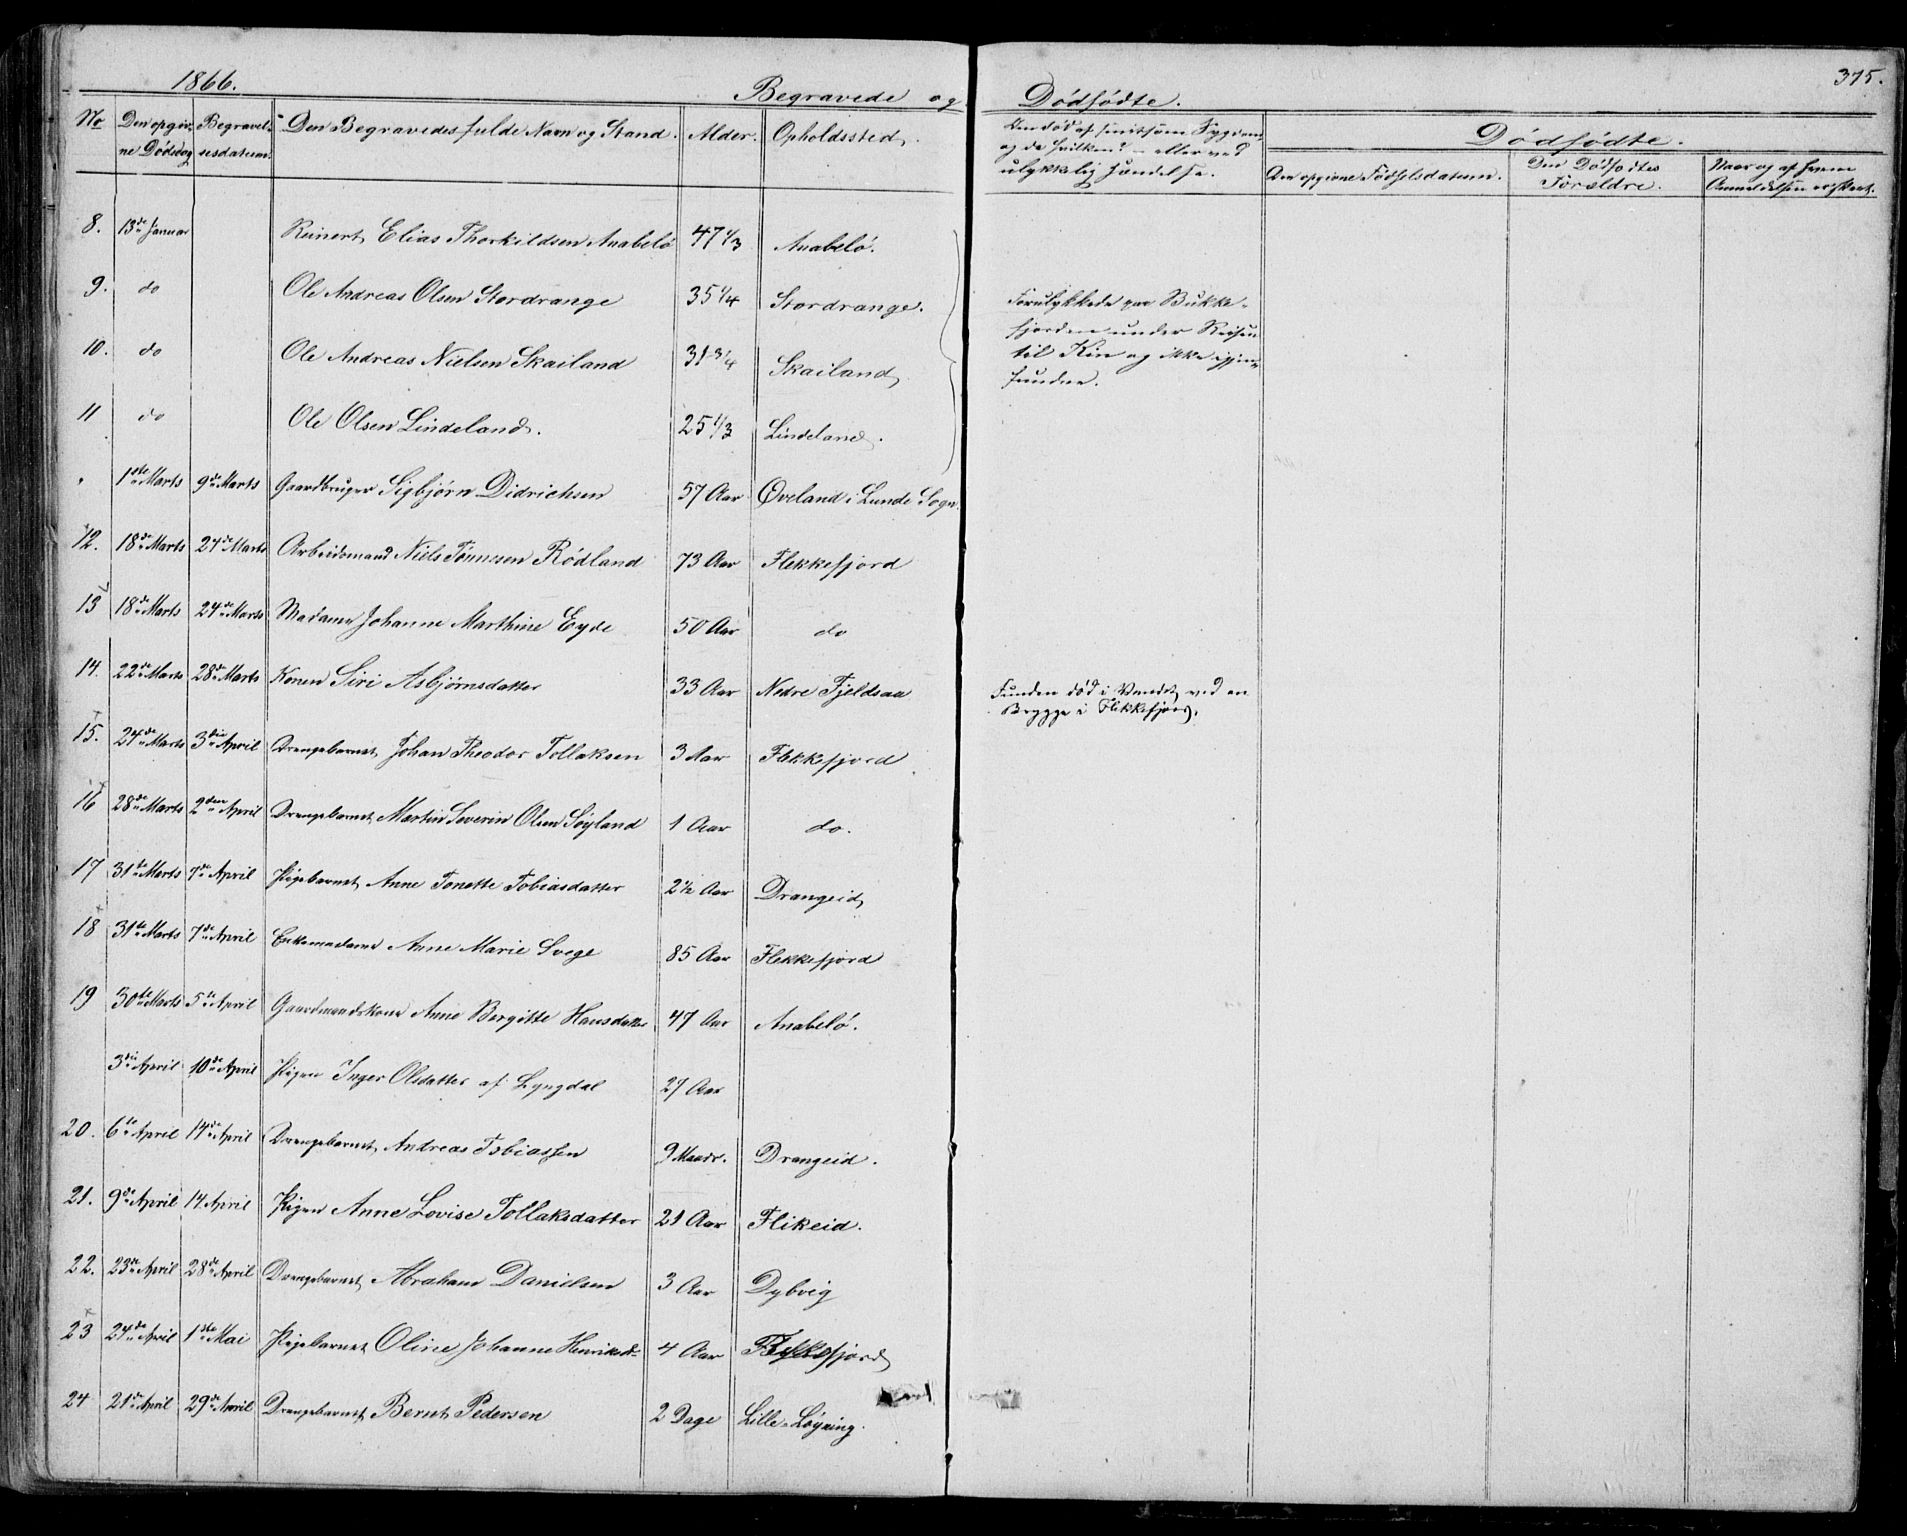 1866.
Begravede og Dødfødte.
375.
No
Den opgiv-
ne Dødsdag
Begravel-
sesdatum.
Den Begravedes fulde Navn og Stand.
Alder.
Opholdssted.
Om død af smitsom Sygdom
og da hvilken? – eller ved
ulykkelig Hændelse.
Dødfødte.
Den opgivne Fødselsdatum.
Den Dødfødtes
Forældre.
Naar og af hvem
Anmeldelsen er skeet.
8. 13de Januar Reinert Elias Thorkildsen Anabelø 47 1/3 Anabelø.
9. do Ole Andreas Olsen Stordrange 35 1/4 Stordrange.
Forulykkede paa Bukke-
fjorden under Reisen
til Kin og ikke igjen-
fundne.
10. do Ole Andreas Nielsen Skailand 31 3/4 Skailand
11 do Ole Olsen Lindeland. 25 1/3 Lindeland.
" 1ste Marts 9de Marts Gaardbruger Sigbjørn Didrichsen 57 Aar Øveland i Lunde Sogn.
12. 18de Marts 24de Marts Arbeidsmand Niels Tønnesen Rødland 73 Aar Flekkefjord
13 18de Marts 24de Marts Madame Johanne Marthine Eyde 50 Aar do
14. 22de Marts 28de Marts Konen Siri Asbjørnsdatter 33 Aar Nedre Fjeldsaa
Funden død i Vandet ved en
Brygge i Flekkefjord.
15. 27de Marts 3die April Drengebarnet Johan Theodor Tollaksen 3 Aar Flekkefjord
16 28de Marts 2den April Drengebarnet Martin Severin Olsen Søyland 1 Aar do.
17 31te Marts 7de April Pigebarnet Anne Tonette Tobiasdatter 2 1/2 Aar Drangeid
18 31te Marts 7de April Enkemadame Anne Marie Svege 85 Aar Flekkefjord
19 30te Marts 5te April Gaardmandskone Anne Bergitte Hansdatter 47 Aar Anabelø.
3die April 10de April Pigen Inger Olsdatter af Lyngdal 27 Aar
20. 6te April 14de April Drengebarnet Andreas Tobiassen 9 Maadr. Drangeid.
21. 9de April 14 April Pigen Anne Lovise Tollaksdatter 21 Aar Flikeid.
22. 23de April 28de April Drengebarnet Abraham Danielsen 3 Aar Dybvig
23 24de April 1ste Mai Pigebarnet Oline Johanne Henriksd- 4 Aar Flekkefjord
24 21de April 29de April Drengebarnet Bernt Pedersen 2 Dage Lille-Løyning.